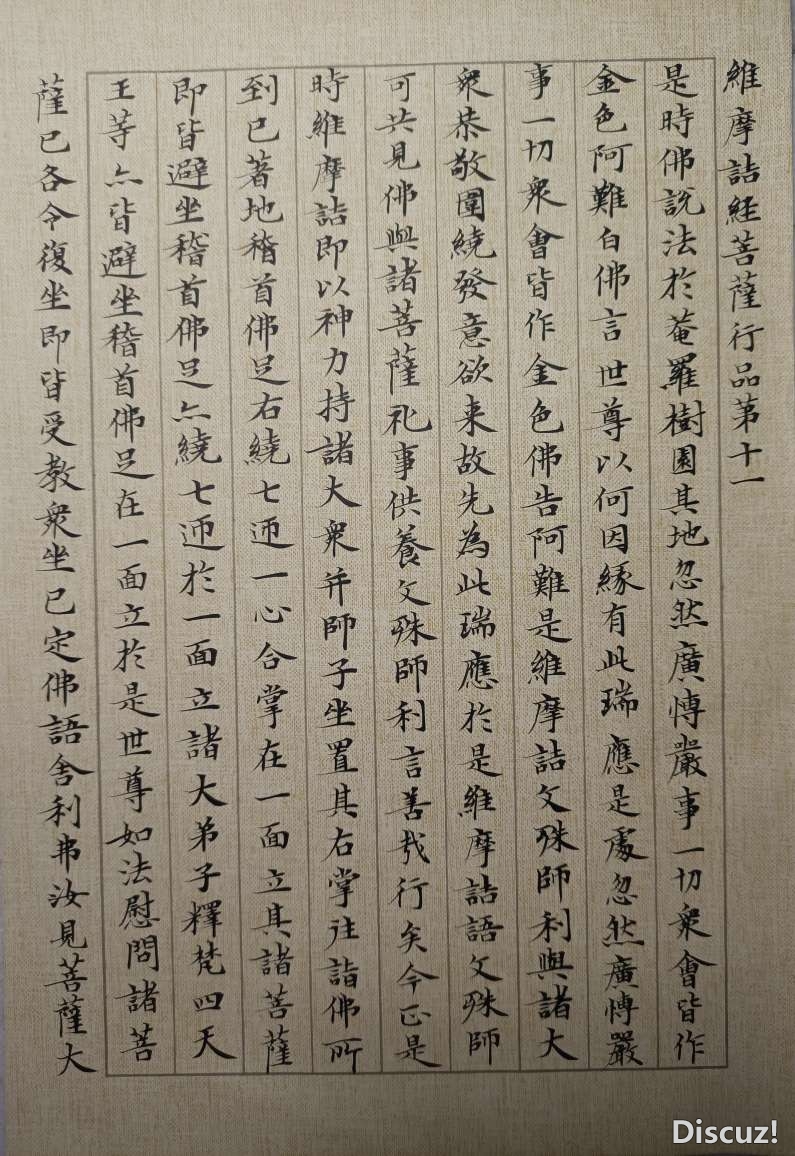 維摩詰経菩薩行品第十一
是時佛說法於菴羅樹園其地忽然廣博嚴事一切衆會皆作
金色阿難白佛言世尊以何因緣有此瑞應是處忽然廣博嚴
事一切衆會皆作金色佛告阿難是維摩詰文殊師利與諸大
衆恭敬圍繞發意欲来故先為此瑞應於是維摩詰語文殊師
可共見佛與諸菩薩礼事供養文殊師利言善哉行矣今正是
時維摩詰即以神力持諸大衆并師子坐置其右掌往詣佛所
到已著地稽首佛足右繞七迊一心合掌在一面立其諸菩薩
即皆避坐稽首佛足亦繞七迊於一面立諸大弟子釋梵四天
王等亦皆避坐稽首佛足在一面立於是世尊如法慰問諸菩
薩已各令復坐即皆受教衆坐已定佛語舍利弗汝見菩薩大
Discuz!